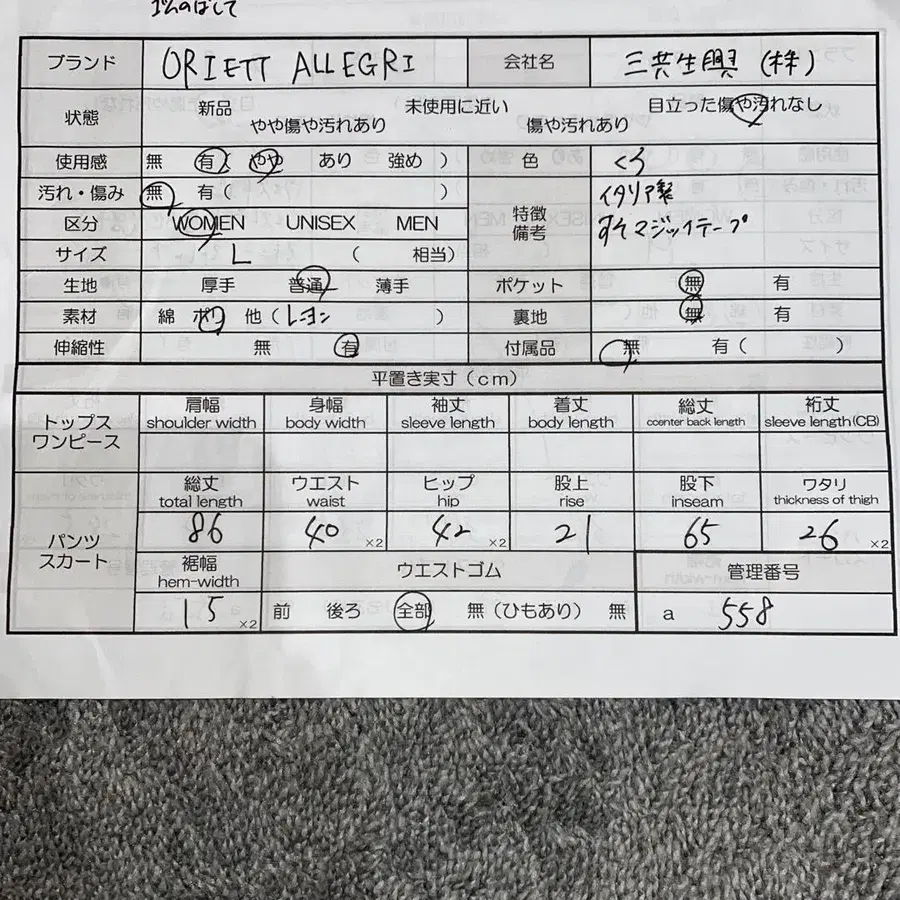 ゴムのばして
ブランド ORIETT ALLEGRI 会社名 三共生興（株）
状態 新品 未使用に近い 目立った傷や汚れなし
やや傷や汚れあり 傷や汚れあり
使用感 無 有( やや あり 強め ) 色 くろ
汚れ・傷み 無 有( ) 特徴 備考 イタリア製
区分 WOMEN UNISEX MEN すそマジックテープ
サイズ L ( 相当)
生地 厚手 普通 薄手 ポケット 無 有
素材 綿 ポリ 他(レーヨン ) 裏地 無 有
伸縮性 無 有 付属品 無 有( )
平置き実寸(cm)
トップス ワンピース 肩幅 身幅 袖丈 着丈 総丈 裄丈
shoulder width body width sleeve length body length ccenter back length sleeve length(CB)
総丈 ウエスト ヒップ 股上 股下 ワタリ
total length waist hip rise inseam thickness of thigh
パンツ スカート 86 40 ×2 42 ×2 21 65 26 ×2
裾幅 hem-width ウエストゴム 管理番号
15 ×2 前 後ろ 全部 無(ひもあり) 無 a 558